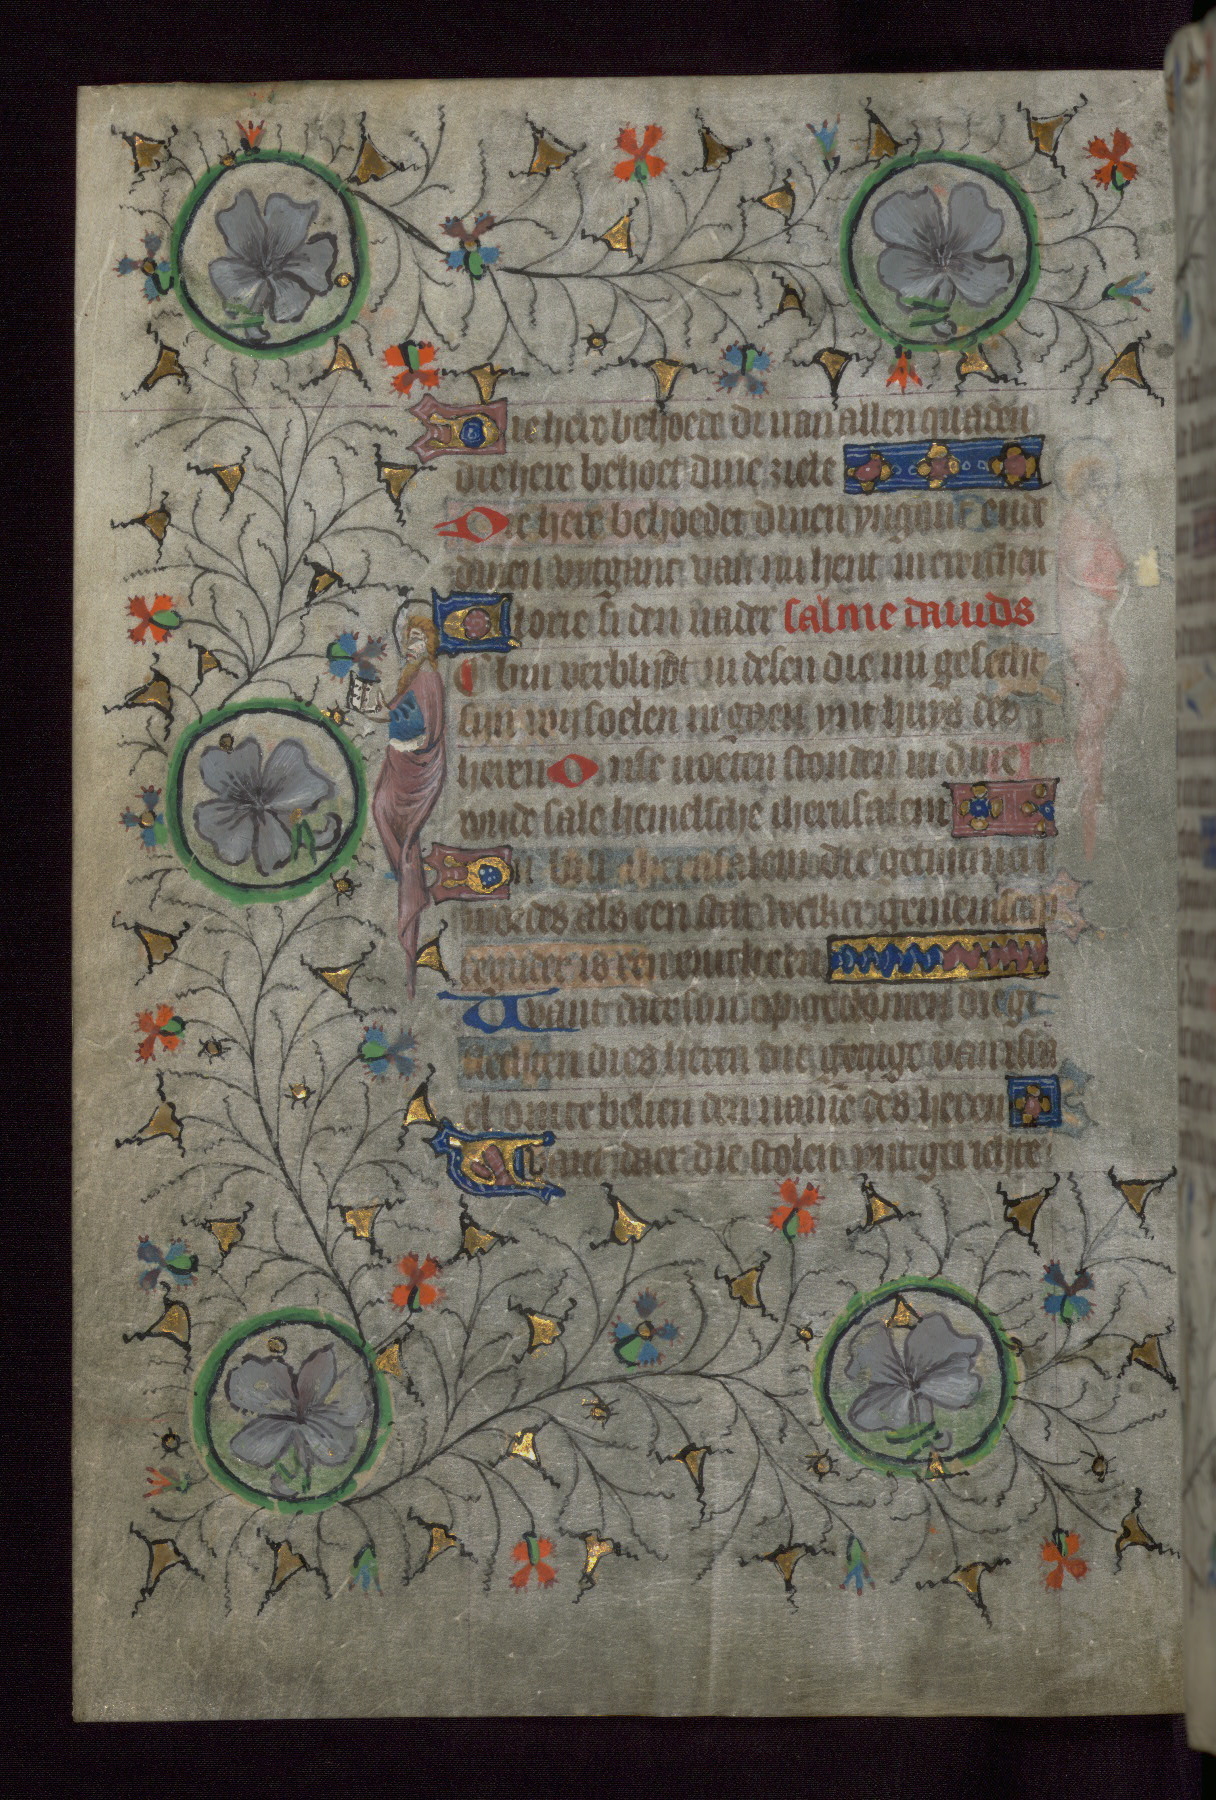 Die here behoede di van allen quaden
die here behoet dine ziele
Die here behoedet dinen yngant ende
dinen vytgant van nu hent in ewicheit
Glorie si den vader salme dauids
Ic bin verblijt in desen die mi geseht
sijn wy soelen in gaen int huys des
heren Onse voeten stonden in dine
wude sale hemelsche iherusalem
die getimmert
wordes als een stat welker gemeinscap
Want daer sijn op geclomen die ge
slechten dies heren die getuge van isra
el om te belien den name des heren
Want daer die stolen